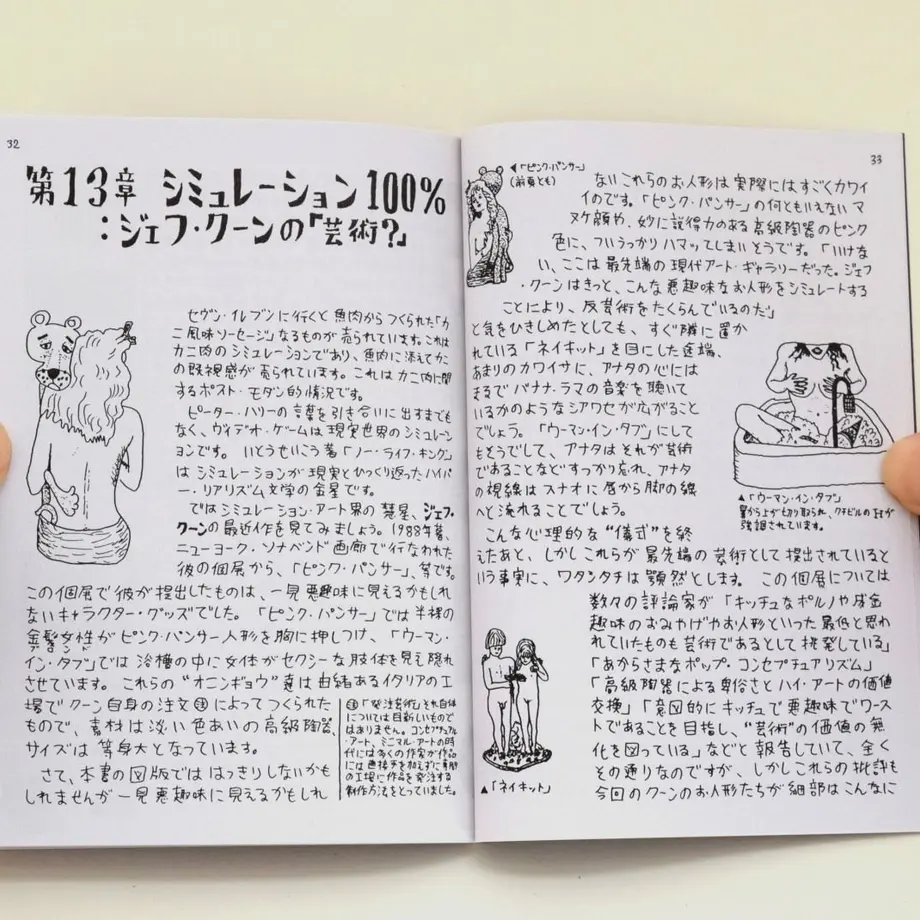 32
第13章 シミュレーション100%
：ジェフ・クーンの「芸術？」
セヴン・イレブンに行くと魚肉からつくられた「カ
ニ風味ソーセージ」なるものが売られています。これは
カニ肉のシミュレーションであり、魚肉に添えてカニ
の既視感が売られています。これはカニ肉に関
するポスト・モダン的情況です。
ピーター・ハリーの言葉を引き合いに出すまでも
なく、ヴィデオ・ゲームは現実世界のシミュレーシ
ョンです。いとうせいこう著「ノー・ライフ・キング」
はシミュレーションが現実とひっくり返ったハイパ
ー・リアリズム文学の金星です。
ではシミュレーション・アート界の彗星、ジェフ・
クーンの最近作を見てみましょう。1988年暮、
ニューヨーク・ソナベンド画廊で行なわれた
彼の個展から、「ピンク・パンサー」、等です。
この個展で彼が提出したものは、一見悪趣味に見えるかもしれ
ないキャラクター・グッズでした。「ピンク・パンサー」では半裸の
金髪女性がピンク・パンサー人形を胸に押しつけ、「ウーマン・
イン・タブ」では浴槽の中に女体がセクシーな肢体を見え隠れ
させています。これらの"オニンギョウ"達は由緒あるイタリアの工
場でクーン自身の注文註によってつくられた
もので、素材は淡い色あいの高級陶器、
サイズは等身大となっています。
さて、本書の図版でははっきりしないかも
しれませんが一見悪趣味に見えるかもしれ
註「発注芸術」それ自体
については目新しいもので
はありません。コンセプチュアル
・アート、ミニマル・アートの時
代には多くの作家が作品
には直接手を加えずに専門
の工場に作品を発注する
制作方法をとっていました。
33
◀「ピンク・パンサー」
（前頁とも）
ないこれらのお人形は実際にはすごくカワイ
イのです。「ピンク・パンサー」の何ともいえないマ
ヌケ顔や、妙に説得力のある高級陶器のピンク
色に、ついうっかりハマッてしまいそうです。「いけな
い、ここは最先端の現代アート・ギャラリーだった。ジェフ
・クーンはきっと、こんな悪趣味なお人形をシミュレートする
ことにより、反芸術をたくらんでいるのだ」
と気をひきしめたとしても、すぐ隣に置か
れている「ネイキット」を目にした途端、
あまりのカワイサに、アナタの心には
まるでバナナ・ラマの音楽を聴いて
いるかのようなシアワセが広がること
でしょう。「ウーマン・イン・タブ」にして
もそうでして、アナタはそれが芸術
であることなどすっかり忘れ、アナタ
の視線はスナオに唇から脚の線
へと流れることでしょう。
▲「ウーマン・イン・タブ」
鼻から上が切り取られ、クチビルのエロが
強調されています。
こんな心理的な"儀式"を終
えたあと、しかしこれらが最先端の芸術として提出されていると
いう事実に、ワタシタチは顎然とします。この個展については
数々の評論家が「キッチュなポルノや成金
趣味のおみやげお人形といった最低と思わ
れていたものも芸術であるとして挑発している」
「あからさまなポップ・コンセプチュアリズム」
「高級陶器による卑俗さとハイ・アートの価値
交換」「意図的にキッチュで悪趣味でワー
ストであることを目指し、"芸術"の価値の無
化を図っている」などと報告していて、全く
その通りなのですが、しかしこれらの批評も
今回のクーンのお人形たちが細部はこんなに
▲「ネイキット」